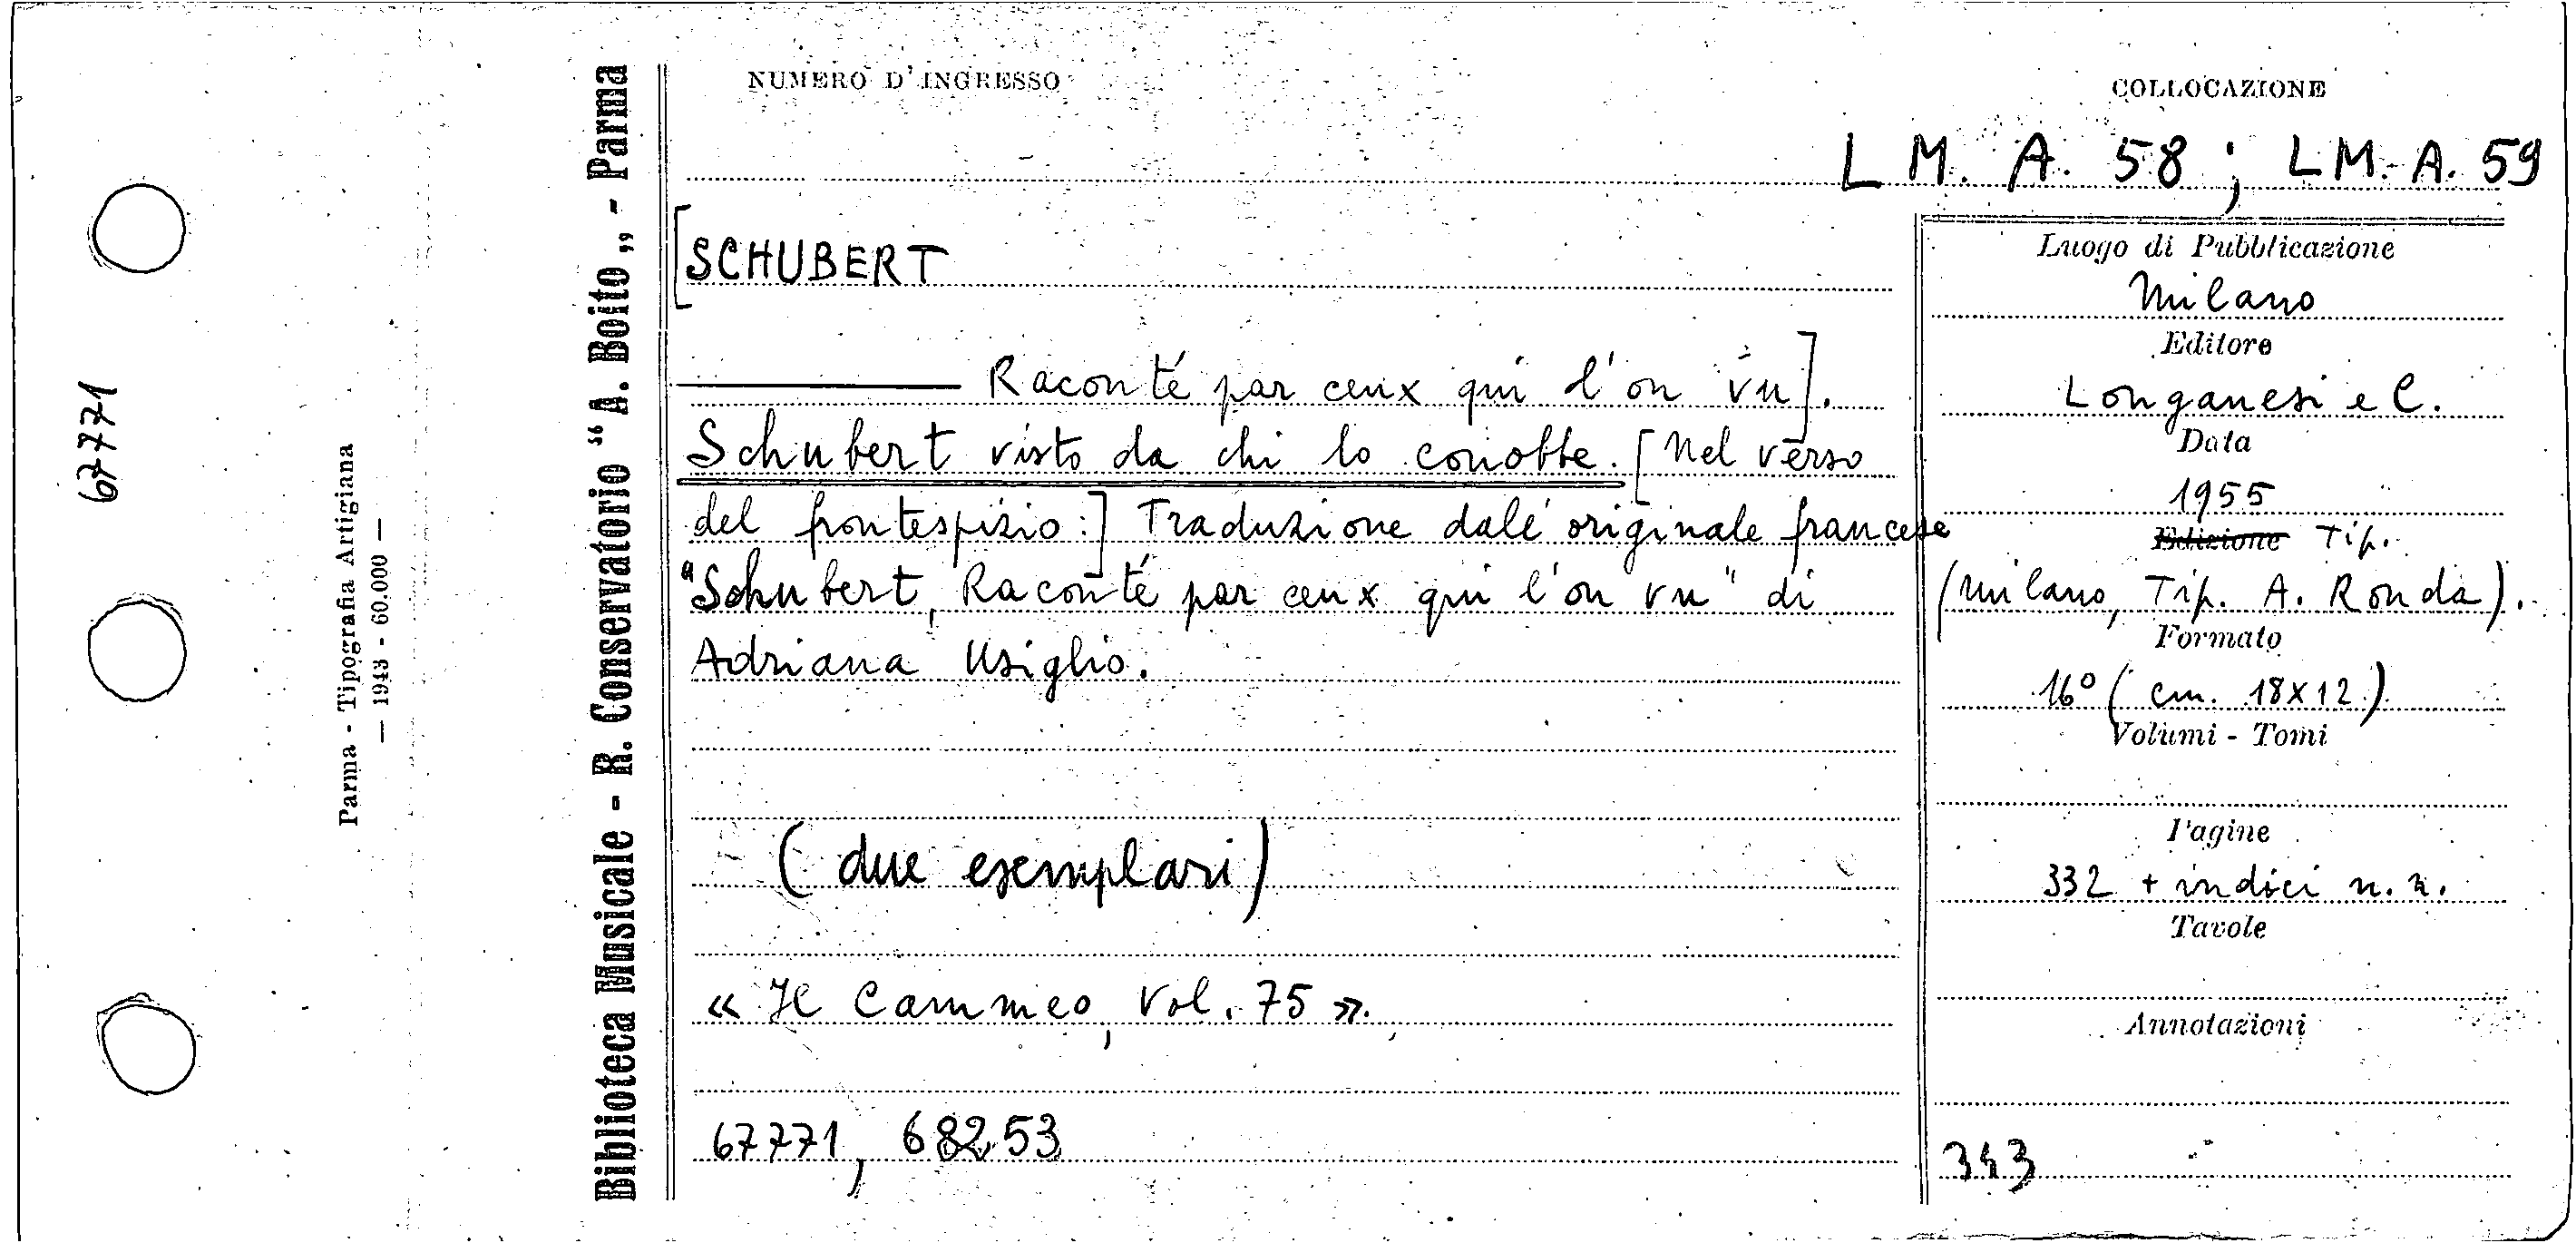 67771
Parma - Tipografia Artigiana
— 1943 - 60.000 —
Biblioteca Musicale - R. Conservatorio “A. Boito„ - Parma
NUMERO D'INGRESSO
COLLOCAZIONE
LM. A. 58 ; LM. A. 59
[SCHUBERT
——— Raconté par ceux qui l'on vu].
Schubert visto da chi lo conobbe. [Nel verso
del frontespizio:] Traduzione dall'originale francese
"Schubert, Raconté par ceux qui l'on vu" di
Adriana Usiglio.
(due esemplari)
« Il Cammeo, Vol. 75 ».
67771, 68253
Luogo di Pubblicazione
Milano
Editore
Longanesi e C.
Data
1955
Edizione Tip.
(Milano, Tip. A. Ronda).
Formato
16° (cm. 18x12)
Volumi - Tomi
Pagine
332 + indici n.n.
Tavole
Annotazioni
343